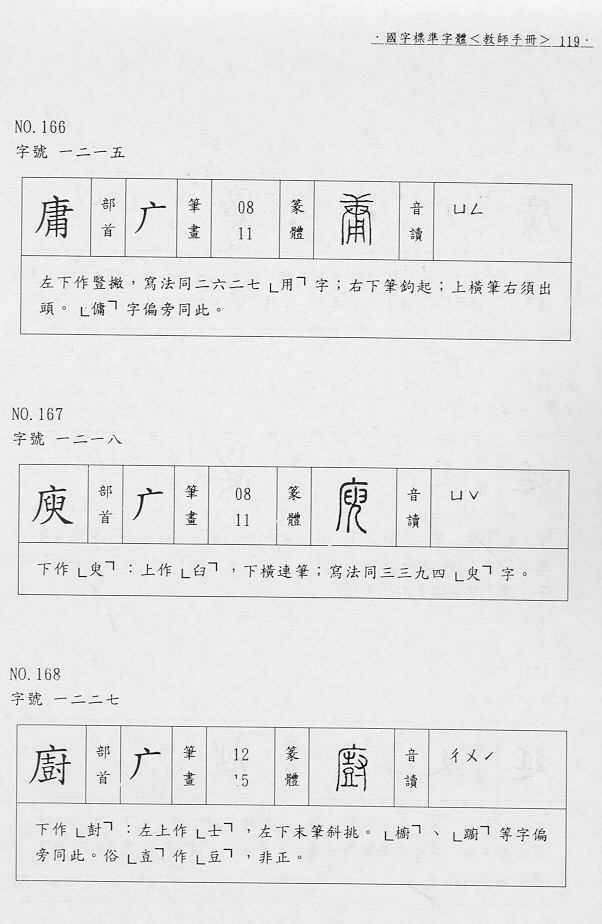 ·國字標準字體＜教師手冊＞ 119·
NO.166
字號 一二一五
庸 部首 广 筆畫 08 11 篆體 音讀 ㄩㄥ
左下作豎撇，寫法同二六二七「用」字；右下筆鉤起；上橫筆右須出
頭。「傭」字偏旁同此。
NO.167
字號 一二一八
庾 部首 广 筆畫 08 11 篆體 音讀 ㄩˇ
下作「臾」：上作「臼」，下橫連筆；寫法同三三九四「臾」字。
NO.168
字號 一二二七
廚 部首 广 筆畫 12 15 篆體 音讀 ㄔㄨˊ
下作「尌」：左上作「士」，左下末筆斜挑。「櫥」、「躕」等字偏
旁同此。俗「壴」作「豆」，非正。